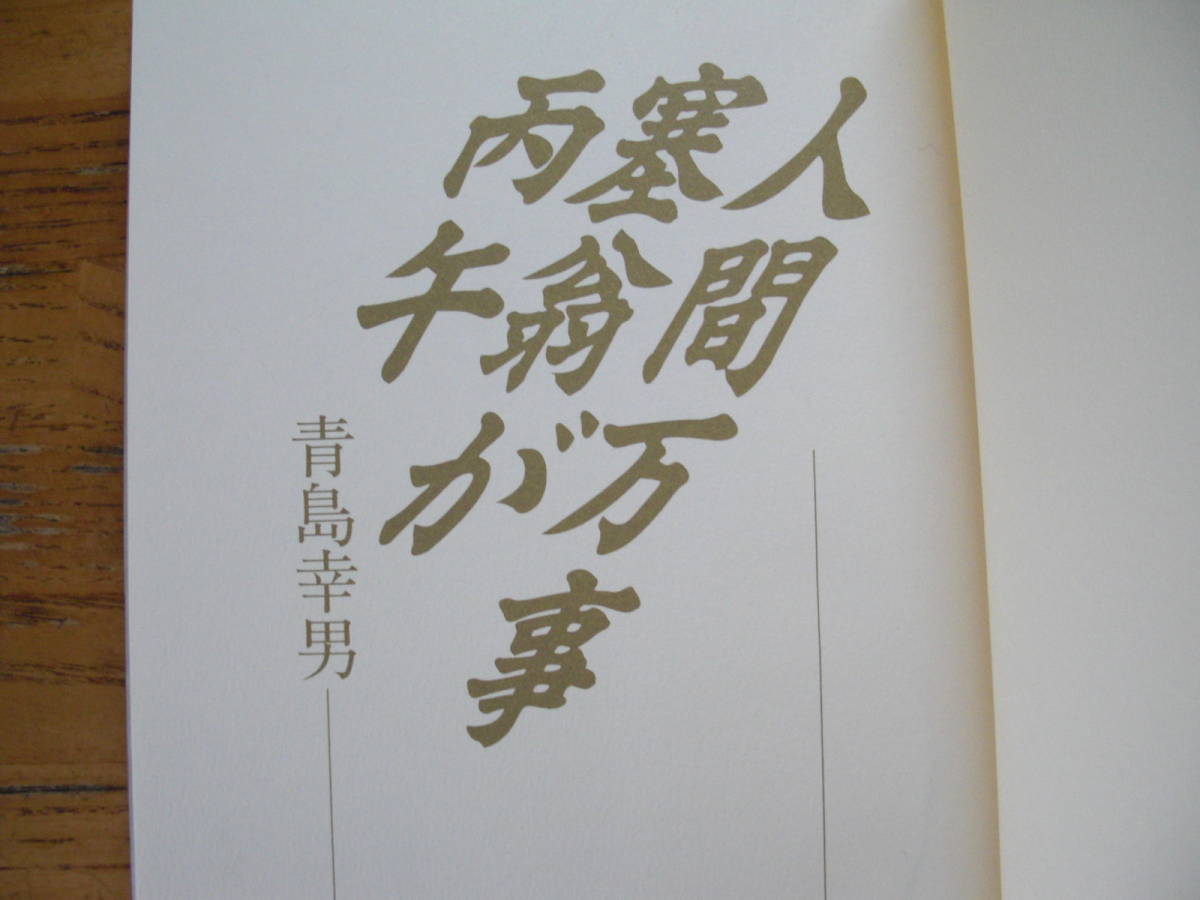 人間万事
塞翁が
丙午
青島幸男